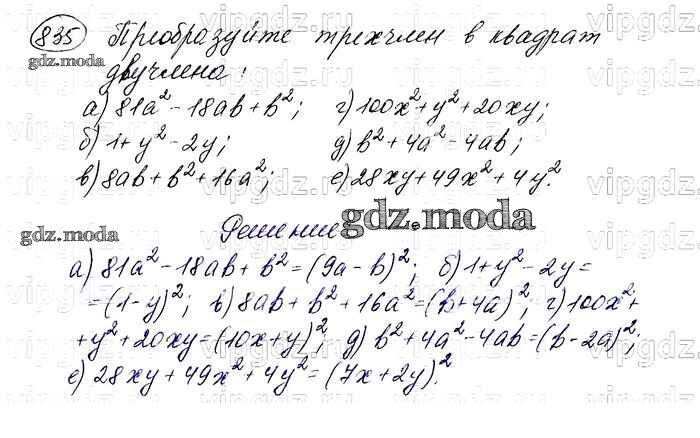 835 Преобразуйте трехчлен в квадрат
gdz.moda
двучлена:
а) 81a² - 18ab + b²; г) 100x² + y² + 20xy;
б) 1 + y² - 2y; д) b² + 4a² - 4ab;
в) 8ab + b² + 16a²; е) 28xy + 49x² + 4y².
Решение
gdz.moda
gdz.moda
а) 81a² - 18ab + b² = (9a - b)²; б) 1 + y² - 2y =
= (1 - y)²; в) 8ab + b² + 16a² = (b + 4a)²; г) 100x² +
+ y² + 20xy = (10x + y)²; д) b² + 4a² - 4ab = (b - 2a)²;
е) 28xy + 49x² + 4y² = (7x + 2y)².